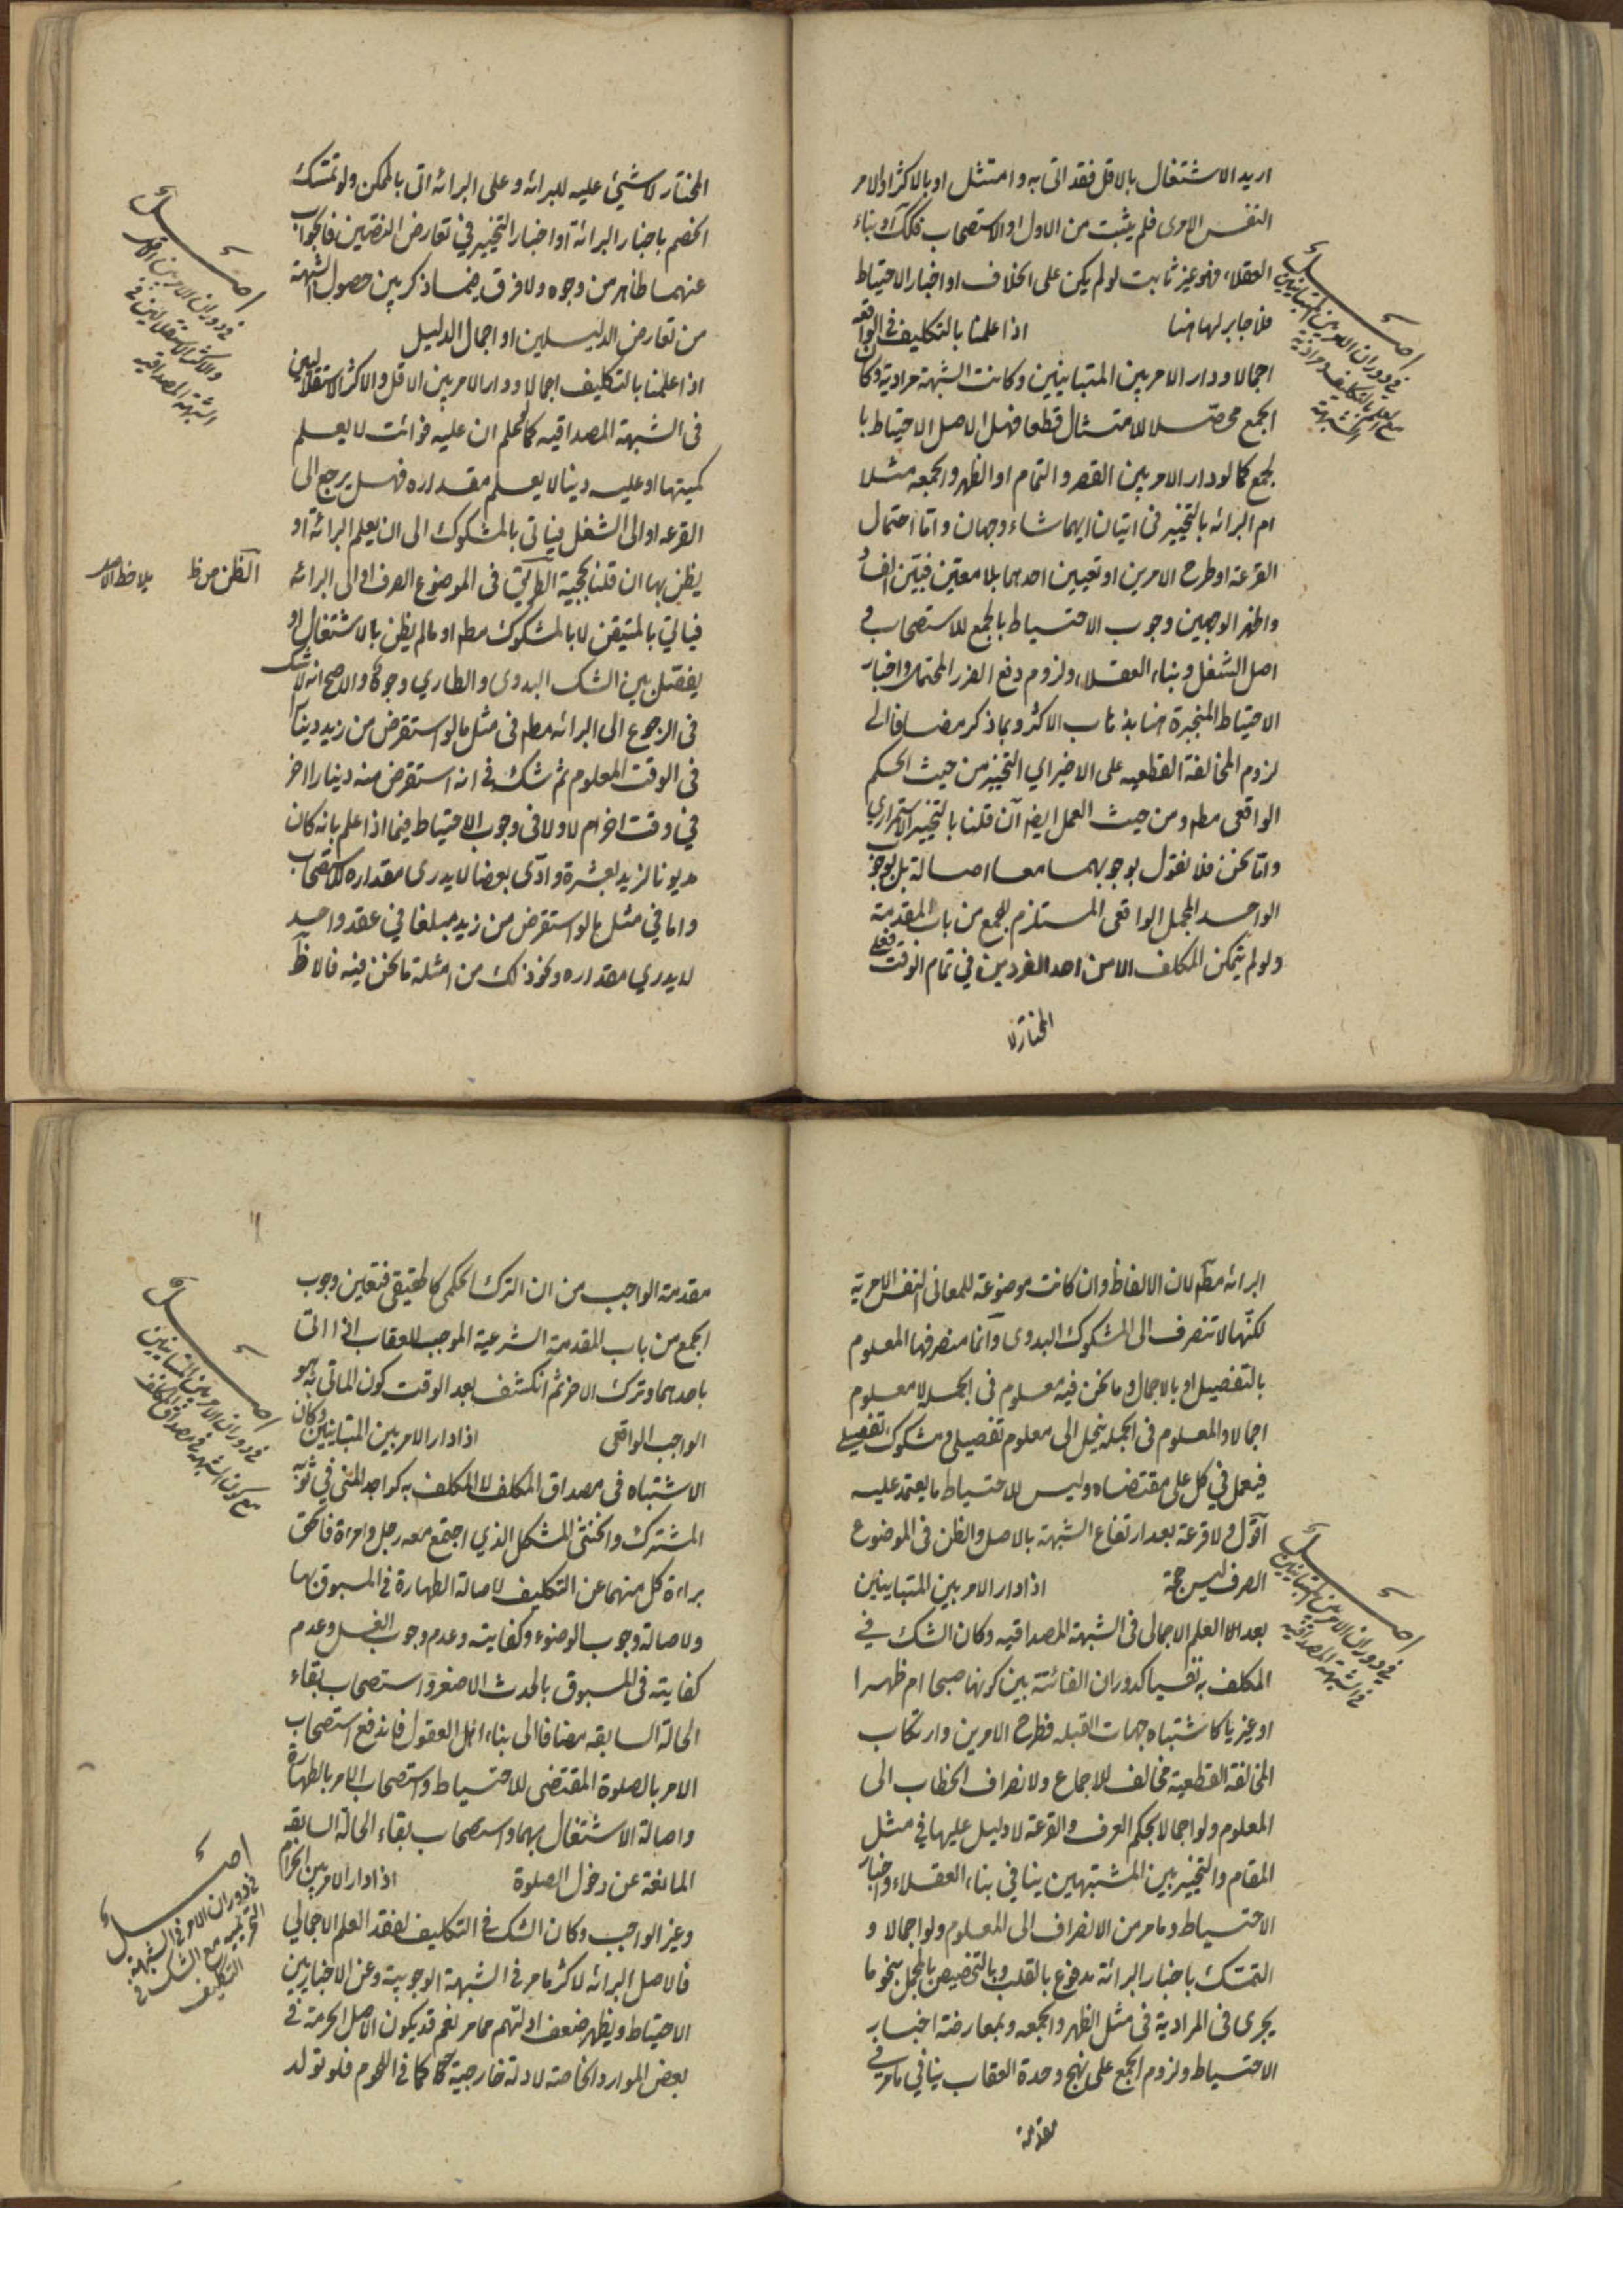 اريد الاشتغال بالاقل فقد اتى به وامتثل او بالاكثر او الامر
النفس الامرى فلم يثبت من الاول او الاستصحاب فكك او بناء
العقلاء فهو غير ثابت لو لم يكن على الخلاف او اخبار الاحتياط
فلا جابر لها هنا اذا علمنا بالتكليف فى الواقعه
اجمالا ودار الامر بين المتباينين وكانت الشبهة مرادية وكان
الجمع محصّلا للامتثال قطعا فهل الاصل الاحتياط با
لجمع كما لو دار الامر بين القصر والتمام او الظهر والجمعه مثلا
ام البرائه بالتخيير فى اتيان ايهما شاء وجهان واما احتمال
القرعة او طرح الامرين او تعيين احدهما بلا معين فبيّن الفساد
واظهر الوجهين وجوب الاحتياط بالجمع للاستصحاب و
اصل الشغل وبناء العقلاء ولزوم دفع الضرر المحتمل واخبار
الاحتياط المنجبرة هنا بذهاب الاكثر وبما ذكر مضافا الى
لزوم المخالفة القطعيه على الاخير اي التخيير من حيث الحكم
الواقعى مطم ومن حيث العمل ايضا ان قلنا بالتخيير الاستمراري
واما نحن فلا نقول بوجوبهما معا اصالة بل بوجوب
الواحد المجمل الواقعى المستلزم للجمع من باب المقدمة
ولو لم يتمكن المكلف الا من احد الفردين في تمام الوقت فعلى
المختار لا
اصل
فى دوران الامر بين المتباينين
مع العلم بالتكليف ومرادية
الشبهة
المختار لا شيئ عليه للبرائه وعلى البرائه اتى بالممكن ولو تمسّك
الخصم باخبار البرائة او اخبار التخيير في تعارض النصّين فالجواب
عنهما ظاهر من وجوه ولا فرق فيما ذكر بين حصول الشبهة
من تعارض الدليلين او اجمال الدليل
اذا علمنا بالتكليف اجمالا ودار الامر بين الاقل والاكثر الاستقلاليين
فى الشبهة المصداقيه كما لو علم ان عليه فوائت لا يعلم
كميتها او عليه دينا لا يعلم مقداره فهل يرجع الى
القرعه او الى الشغل فياتى بالمشكوك الى ان يعلم البرائة او
يظن بها ان قلنا بحجية الظن فى الموضوع الصرف او الى البرائه
فياتى بالمتيقن لا بالمشكوك مطم او ما لم يظن بالاشتغال او
يفصّل بين الشك البدوى والطاري وجوه والاصح انه لا شك
فى الرجوع الى البرائه مطم فى مثل ما لو استقرض من زيد دينارا
فى الوقت المعلوم ثم شك في انه استقرض منه دينارا اخر
في وقت اخر ام لا ولا فى وجوب الاحتياط فيما اذا علم بانه كان
مديونا لزيد بعشرة وادّى بعضا لا يدرى مقداره للاستصحاب
واما في مثل ما لو استقرض من زيد مبلغا في عقد واحد
لا يدري مقداره ونحو ذلك من امثلة ما نحن فيه فالاظهر
اصل
فى دوران الامر بين الاقل
والاكثر الاستقلاليين فى
الشبهة المصداقيه
الظن من ظ
البرائه مطم لان الالفاظ وان كانت موضوعة للمعانى النفس الامرية
لكنّها لا تنصرف الى المشكوك البدوى وانما منصرفها المعلوم
بالتفصيل او بالاجمال وما نحن فيه معلوم فى الجملة لا معلوم
اجمالا والمعلوم فى الجمله ينحل الى معلوم تفصيلى ومشكوك تفصيلى
فيعمل في كل على مقتضاه وليس للاحتياط ما يعتمد عليه
ولا قرعة بعد ارتفاع الشبهة بالاصل والظن فى الموضوع
الصرف ليس حجة اذا دار الامر بين المتباينين
بعد العلم الاجمالى فى الشبهة المصداقيه وكان الشك في
المكلف به نفسيا كدوران الفائتة بين كونها صبحا ام ظهرا
او غيريا كاشتباه جهات القبله فطرح الامرين وارتكاب
المخالفة القطعية مخالف للاجماع ولانصراف الخطاب الى
المعلوم ولو اجمالا بحكم العرف والقرعة لا دليل عليها في مثل
المقام والتخيير بين المشتبهين ينافي بناء العقلاء واخبار
الاحتياط وما مر من الانصراف الى المعلوم ولو اجمالا و
التمسّك باخبار البرائة مدفوع بالقلب وبالتخصيص بالمجمل بنحو ما
يجرى فى المرادية فى مثل الظهر والجمعه وبمعارضة اخبار
الاحتياط ولزوم الجمع على نهج وحدة العقاب ينافي ما مر في
مقدمة
اصل
فى دوران الامر بين المتباينين
فى الشبهة المصداقيه
مقدمة الواجب من ان الترك الحكمى كالحقيقى فتعين وجوب
الجمع من باب المقدمة الشرعية الموجب للعقاب اذا اتى
باحدهما وترك الاخر ثم انكشف بعد الوقت كون الماتى به هو
الواجب الواقعى اذا دار الامر بين المتباينين وكان
الاشتباه فى مصداق المكلف لا المكلف به كواجد المنى في ثوبه
المشترك والخنثى المشكل الذي اجتمع معه رجل وامراة فالحق
براءة كل منهما عن التكليف لاصالة الطهارة فى المسبوق بها
ولاصالة وجوب الوضوء وكفايته وعدم وجوب الغسل وعدم
كفايته فى المسبوق بالحدث الاصغر واستصحاب بقاء
الحالة السابقه مضافا الى بناء اهل العقول فاندفع استصحاب
الامر بالصلوة المقتضى للاحتياط واستصحاب الامر بالطهارة
واصالة الاشتغال بهما واستصحاب بقاء الحالة السابقه
المانعة عن دخول الصلوة اذا دار الامر بين الحرام
وغير الواجب وكان الشك في التكليف لفقد العلم الاجمالي
فالاصل البرائه لاكثر ما مر فى الشبهة الوجوبية وعن الاخباريين
الاحتياط ويظهر ضعف ادلتهم مما مر نعم قد يكون الاصل الحرمة في
بعض الموارد الخاصة لادلة خارجية كما فى اللحوم فلو تولد
اصل
فى دوران الامر بين المتباينين
مع كون الشبهة فى مصداق المكلف
اصل
فى دوران الامر فى الشبهة
التحريميه مع الشك فى
التكليف